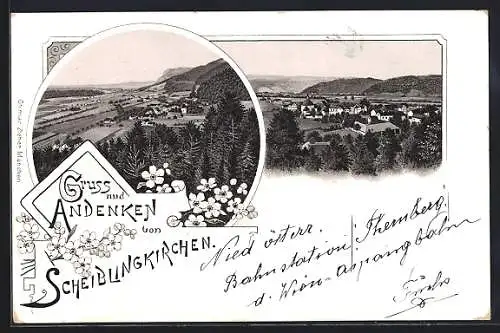 Gruss und
ANDENKEN
von
SCHEIBLINGKIRCHEN.
Nied österr.
Bahnstation Thernberg
d. Wien-Aspangbahn
Fuchs
Ottmar Zieher München